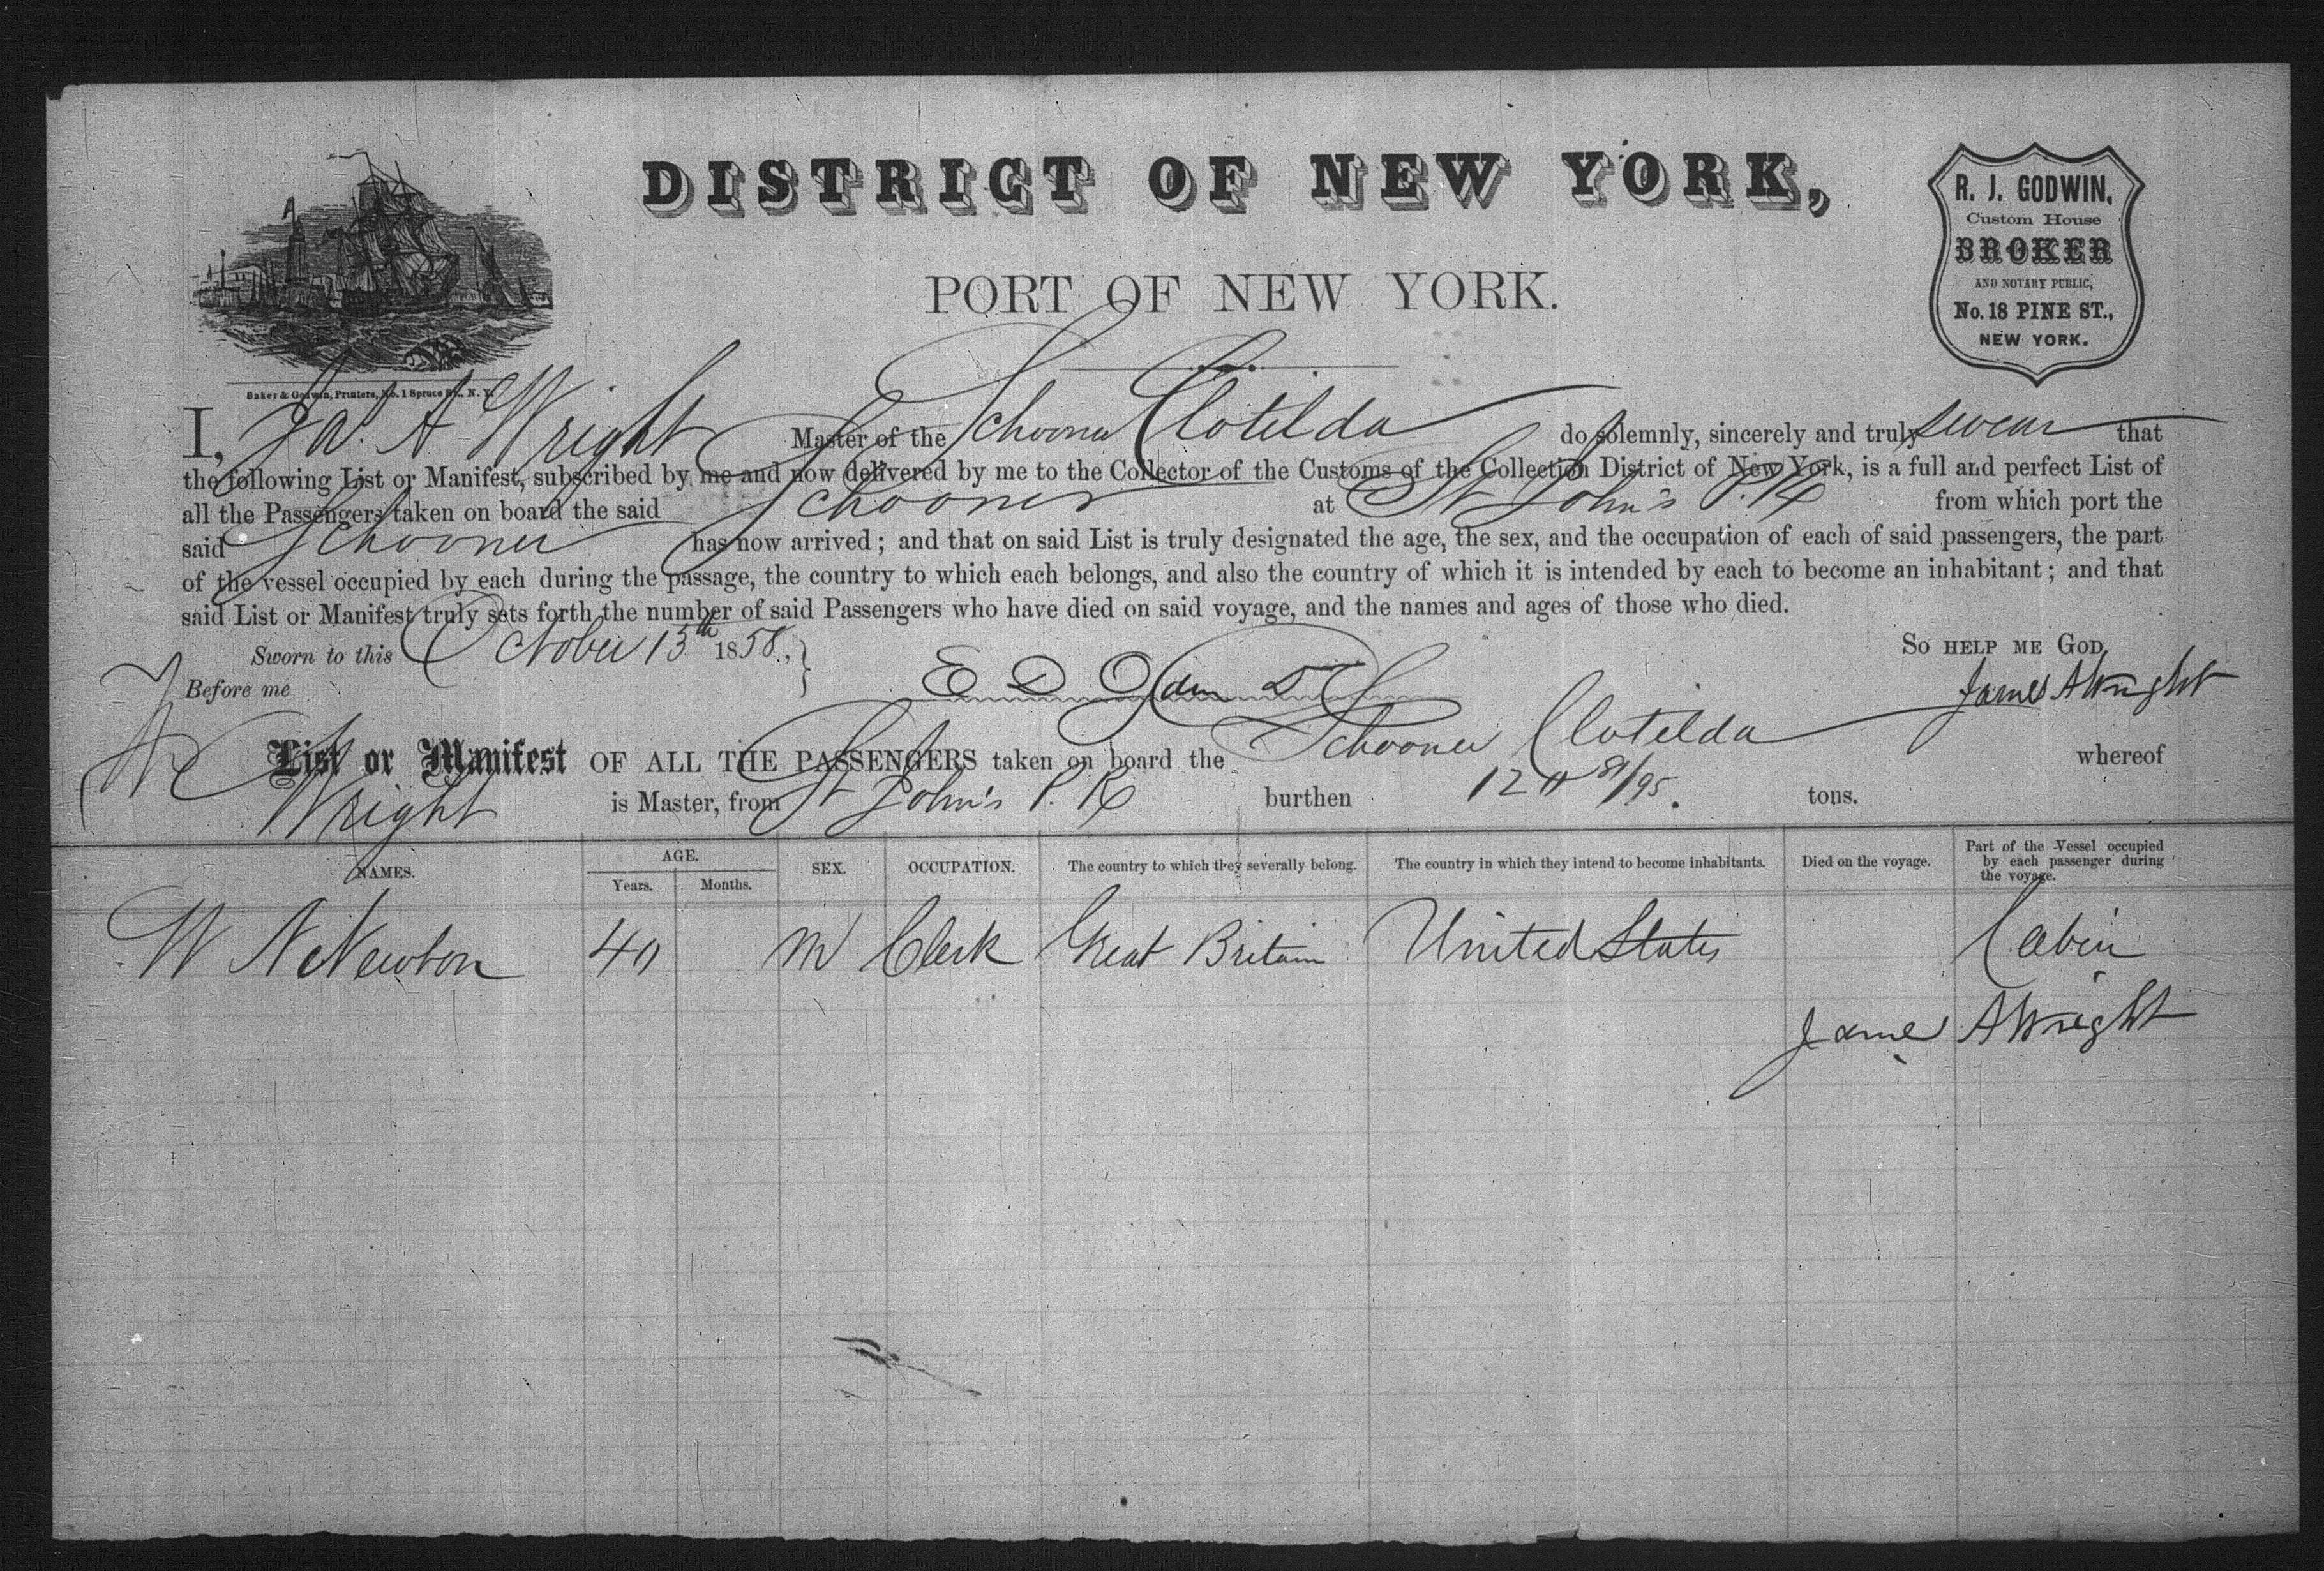 DISTRICT OF NEW YORK,
PORT OF NEW YORK.
R. J. GODWIN,
Custom House
BROKER
AND NOTARY PUBLIC,
No. 18 PINE ST.,
NEW YORK.
Baker & Godwin, Printers, No. 1 Spruce St., N. Y.
I, Jas. A Wright Master of the Schooner Clotilda do solemnly, sincerely and truly swear that
the following List or Manifest, subscribed by me and now delivered by me to the Collector of the Customs of the Collection District of New York, is a full and perfect List of
all the Passengers taken on board the said Schooner at St John's P.R from which port the
said Schooner has now arrived; and that on said List is truly designated the age, the sex, and the occupation of each of said passengers, the part
of the vessel occupied by each during the passage, the country to which each belongs, and also the country of which it is intended by each to become an inhabitant; and that
said List or Manifest truly sets forth the number of said Passengers who have died on said voyage, and the names and ages of those who died.
Sworn to this October 15th 1858, So help me God,
Before me E D Ogden James A Wright
List or Manifest OF ALL THE PASSENGERS taken on board the Schooner Clotilda whereof
Wright is Master, from St John's P. R burthen 81/95. tons.
NAMES. AGE. Years. Months. SEX. OCCUPATION. The country to which they severally belong. The country in which they intend to become inhabitants. Died on the voyage. Part of the Vessel occupied by each passenger during the voyage.
W N Newton 40 M Clerk Great Britain United States Cabin
James A Wright